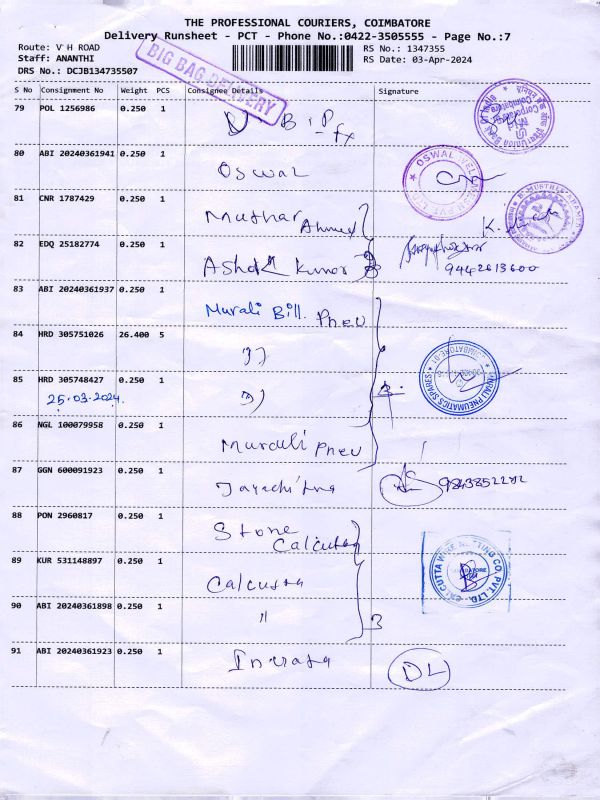 THE PROFESSIONAL COURIERS, COIMBATORE
Delivery Runsheet - PCT - Phone No.:0422-3505555 - Page No.:7
Route: V H ROAD
RS No.: 1347355
Staff: ANANTHI
RS Date: 03-Apr-2024
DRS No.: DCJB134735507
BIG BAG DELIVERY
S No Consignment No Weight PCS Consignee Details Signature
79 POL 1256986 0.250 1
80 ABI 20240361941 0.250 1 Oswal
81 CNR 1787429 0.250 1 Muthar Ahmed
82 EDQ 25182774 0.250 1 Ashok Kumar
9442613600
83 ABI 20240361937 0.250 1 Murali Bill. Pneu
84 HRD 305751026 26.400 5 ")
85 HRD 305748427 0.250 1 ")
25.03.2024.
86 NGL 100079958 0.250 1 Murali Pneu
87 GGN 600091923 0.250 1
88 PON 2960817 0.250 1 Stone Calcutta
89 KUR 531148897 0.250 1 Calcutta
90 ABI 20240361898 0.250 1 "
3
91 ABI 20240361923 0.250 1
DL